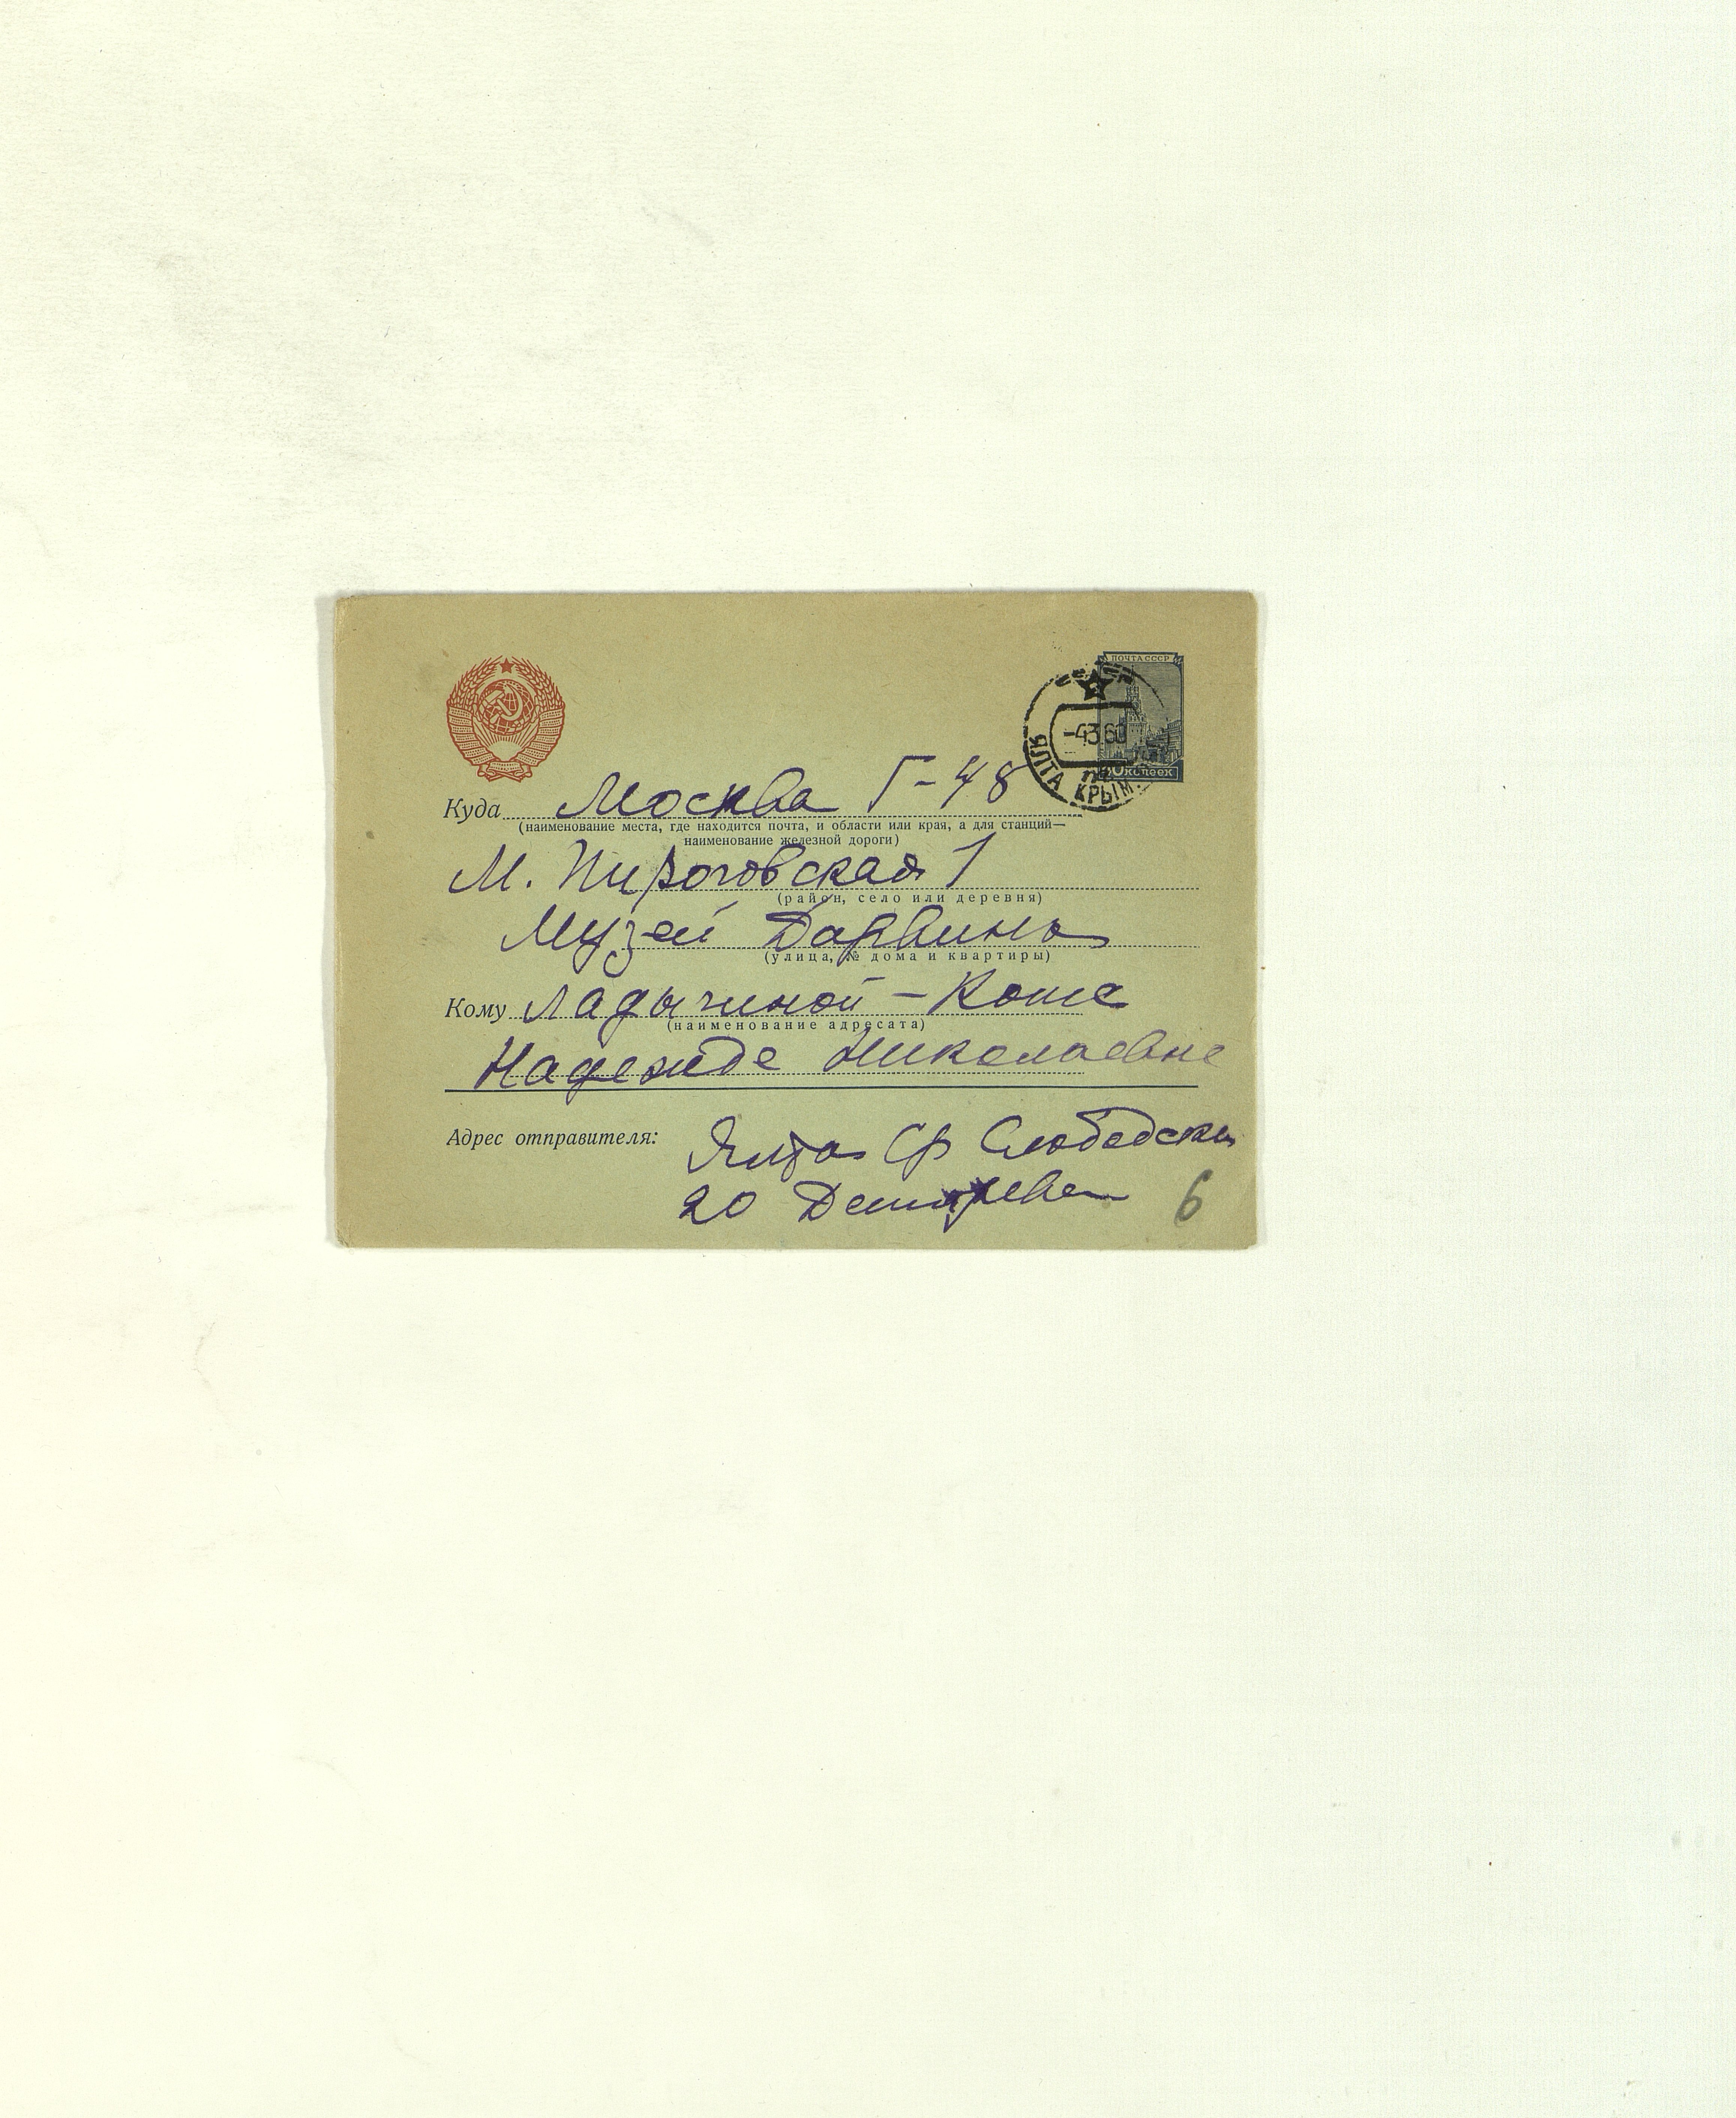 ПОЧТА СССР
-4 3 60
ЯЛТА КРЫМ.
копеек
Куда Москва Г-48
(наименование места, где находится почта, и области или края, а для станций—
наименование железной дороги)
М. Пироговская 1
(район, село или деревня)
Музей Дарвина
(улица, № дома и квартиры)
Кому Ладычиной - Котс
(наименование адресата)
Надежде Николаевне
Адрес отправителя: Ялта Ср Слободская
20
6